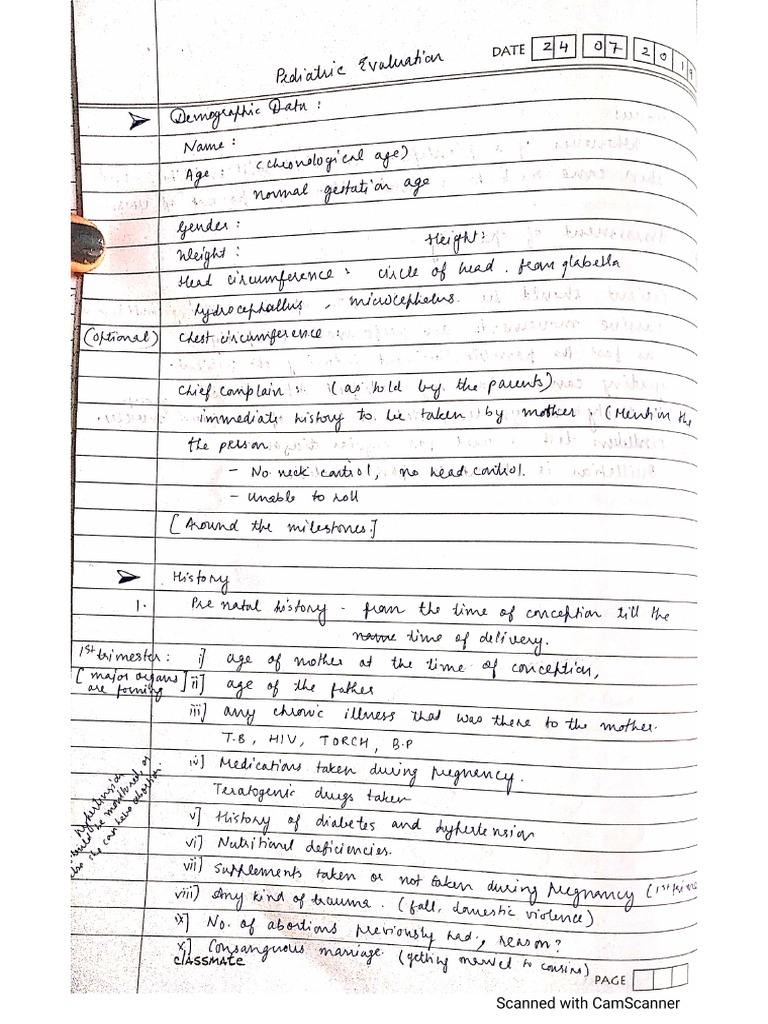 Pediatric Evaluation
DATE 24 07 2019
➤ Demographic Data :
Name :
Age : (chronological age)
normal gestation age
Gender :
Weight : Height :
Head circumference : circle of head. from glabella
hydrocephallus, microcephelus.
(optional) Chest circumference :
Chief complain : (as told by the parents)
immediate history to be taken by mother (Mention the
the person
- No neck control, no head control.
- Unable to roll
[Around the milestones.]
➤ History
1. Pre natal history - from the time of conception till the
time of delivery.
1st trimester : i] age of mother at the time of conception,
[major organs are forming] ii] age of the father
iii] any chronic illness that was there to the mother.
T.B, HIV, TORCH, B.P
iv] Medications taken during pregnancy.
Teratogenic drugs taken
v] History of diabetes and hyhertension
vi] Nutritional deficiencies.
vii] Supplements taken or not taken during pregnancy (1st
viii] Any kind of trauma. (fall, domestic violence)
ix] No. of abortions previously had, reason?
x] Consanguous marriage. (getting married to cousins)
hypertension
be monitored, or
she can have abortion.
CLASSMATE
PAGE
Scanned with CamScanner